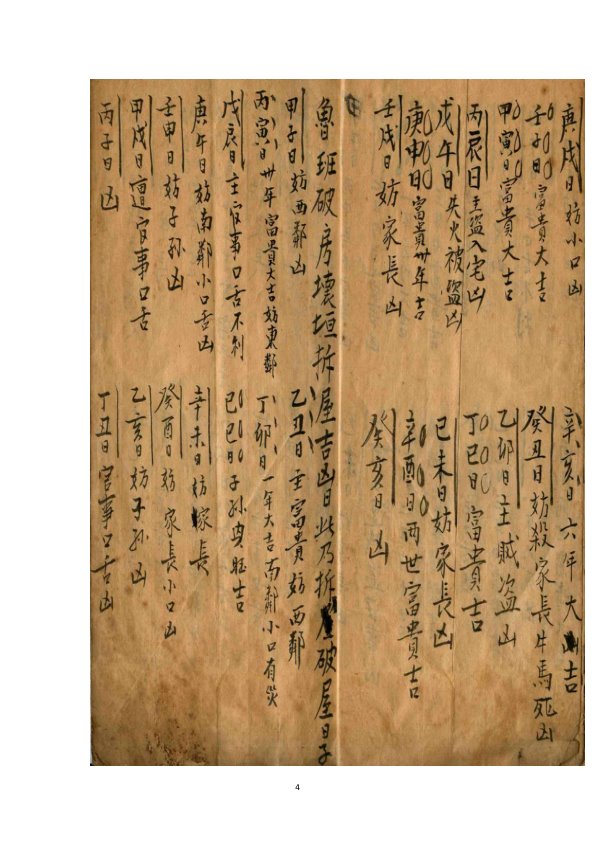 庚戌日妨小口凶
辛亥日六年大吉
壬子日富貴大吉
癸丑日妨殺家長牛馬死凶
甲寅日富貴大吉
乙卯日主賊盜凶
丙辰日主盜入宅凶
丁巳日富貴吉
戊午日失火被盜凶
己未日妨家長凶
庚申日富貴卅年吉
辛酉日兩世富貴吉
壬戌日妨家長凶
癸亥日凶
魯班破房壞垣拆屋吉凶日此乃拆屋破屋日子
甲子日妨西鄰凶
乙丑日主富貴妨西鄰
丙寅日卅年富貴大吉妨東鄰
丁卯日一年大吉南鄰小口有災
戊辰日主官事口舌不利
己巳日子孫興旺吉
庚午日妨南鄰小口舌凶
辛未日妨家長
壬申日妨子孫凶
癸酉日妨家長小口凶
甲戌日遭官事口舌
乙亥日妨子孫凶
丙子日凶
丁丑日官事口舌凶
4